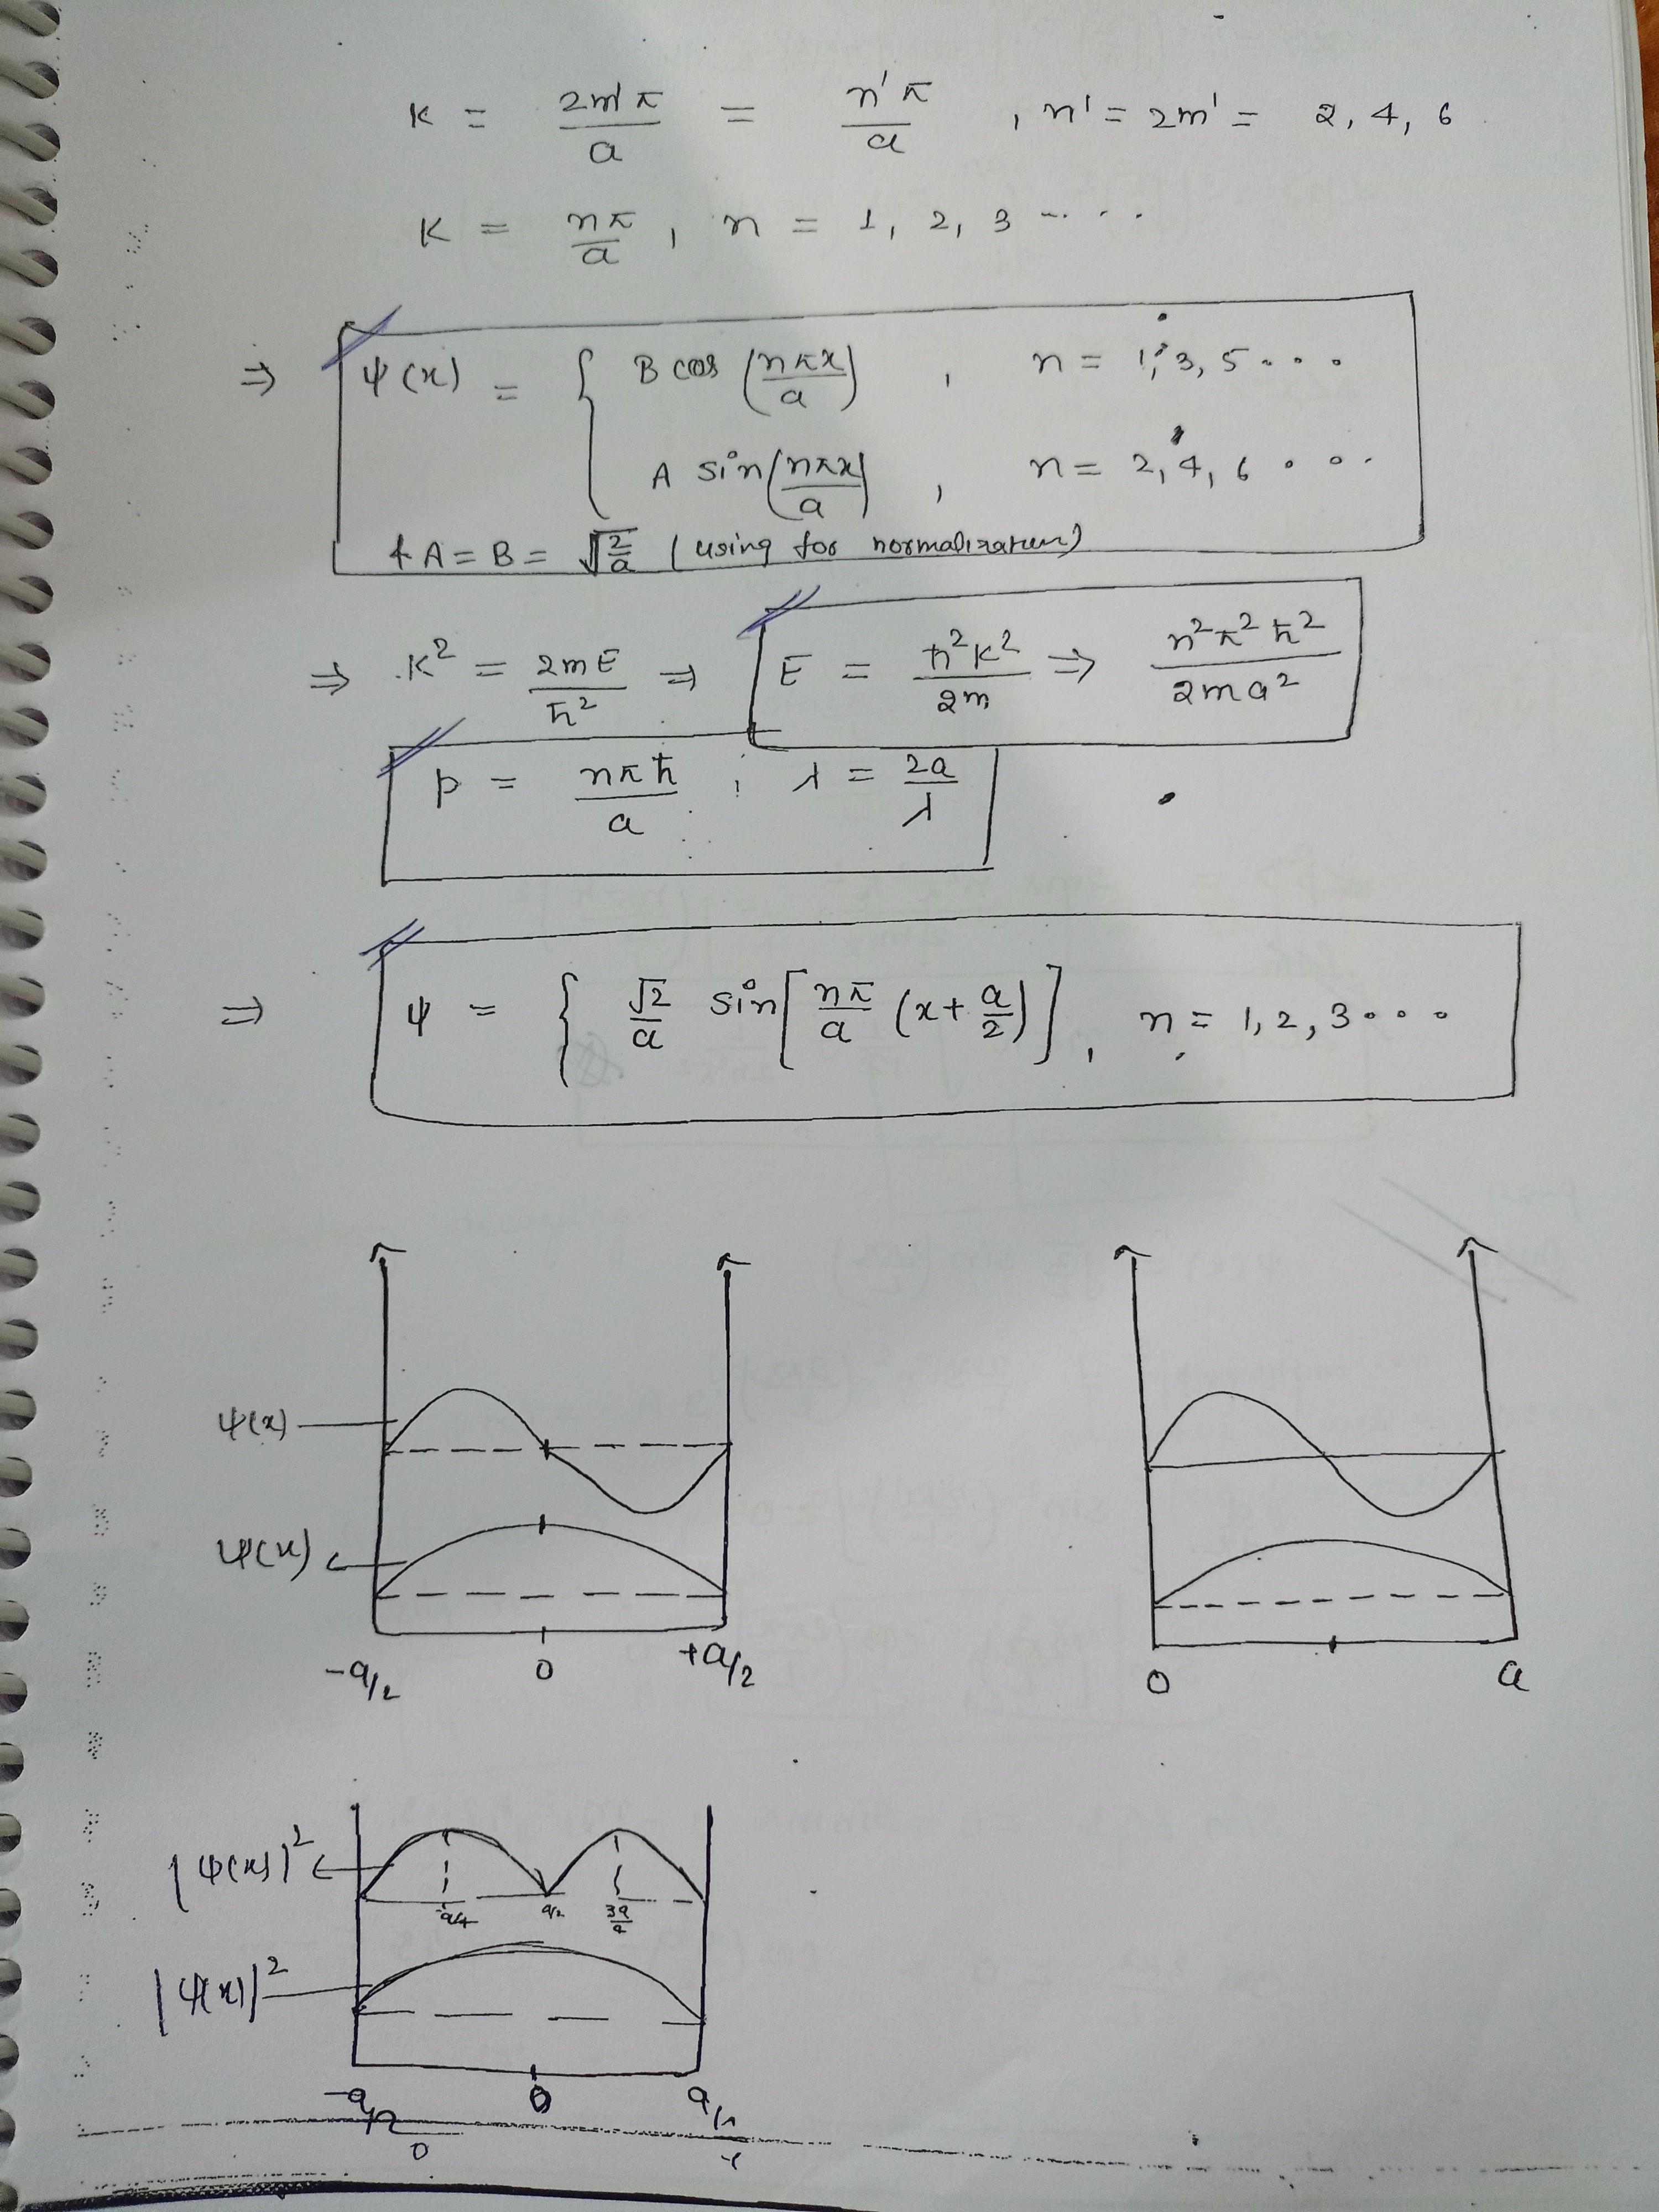 K = 2m'π/a = n'π/a , n' = 2m' = 2, 4, 6
K = nπ/a , n = 1, 2, 3 ....
⇒ ψ(x) = { B cos (nπx/a) , n = 1, 3, 5 ...
A sin (nπx/a) , n = 2, 4, 6 ...
& A = B = √(2/a) (using for normalization)
⇒ K² = 2mE/ħ² ⇒ E = ħ²K²/2m ⇒ n²π²ħ²/2ma²
p = nπħ/a ; λ = 2a/λ
⇒ ψ = { √2/a sin[nπ/a (x + a/2)] , n = 1, 2, 3 ...
ψ(x)
ψ(x)
-a/2 0 +a/2 0 a
|ψ(x)|²
-a/4 a/2 3a/a
|ψ(x)|²
-a/2 0 a/2
0